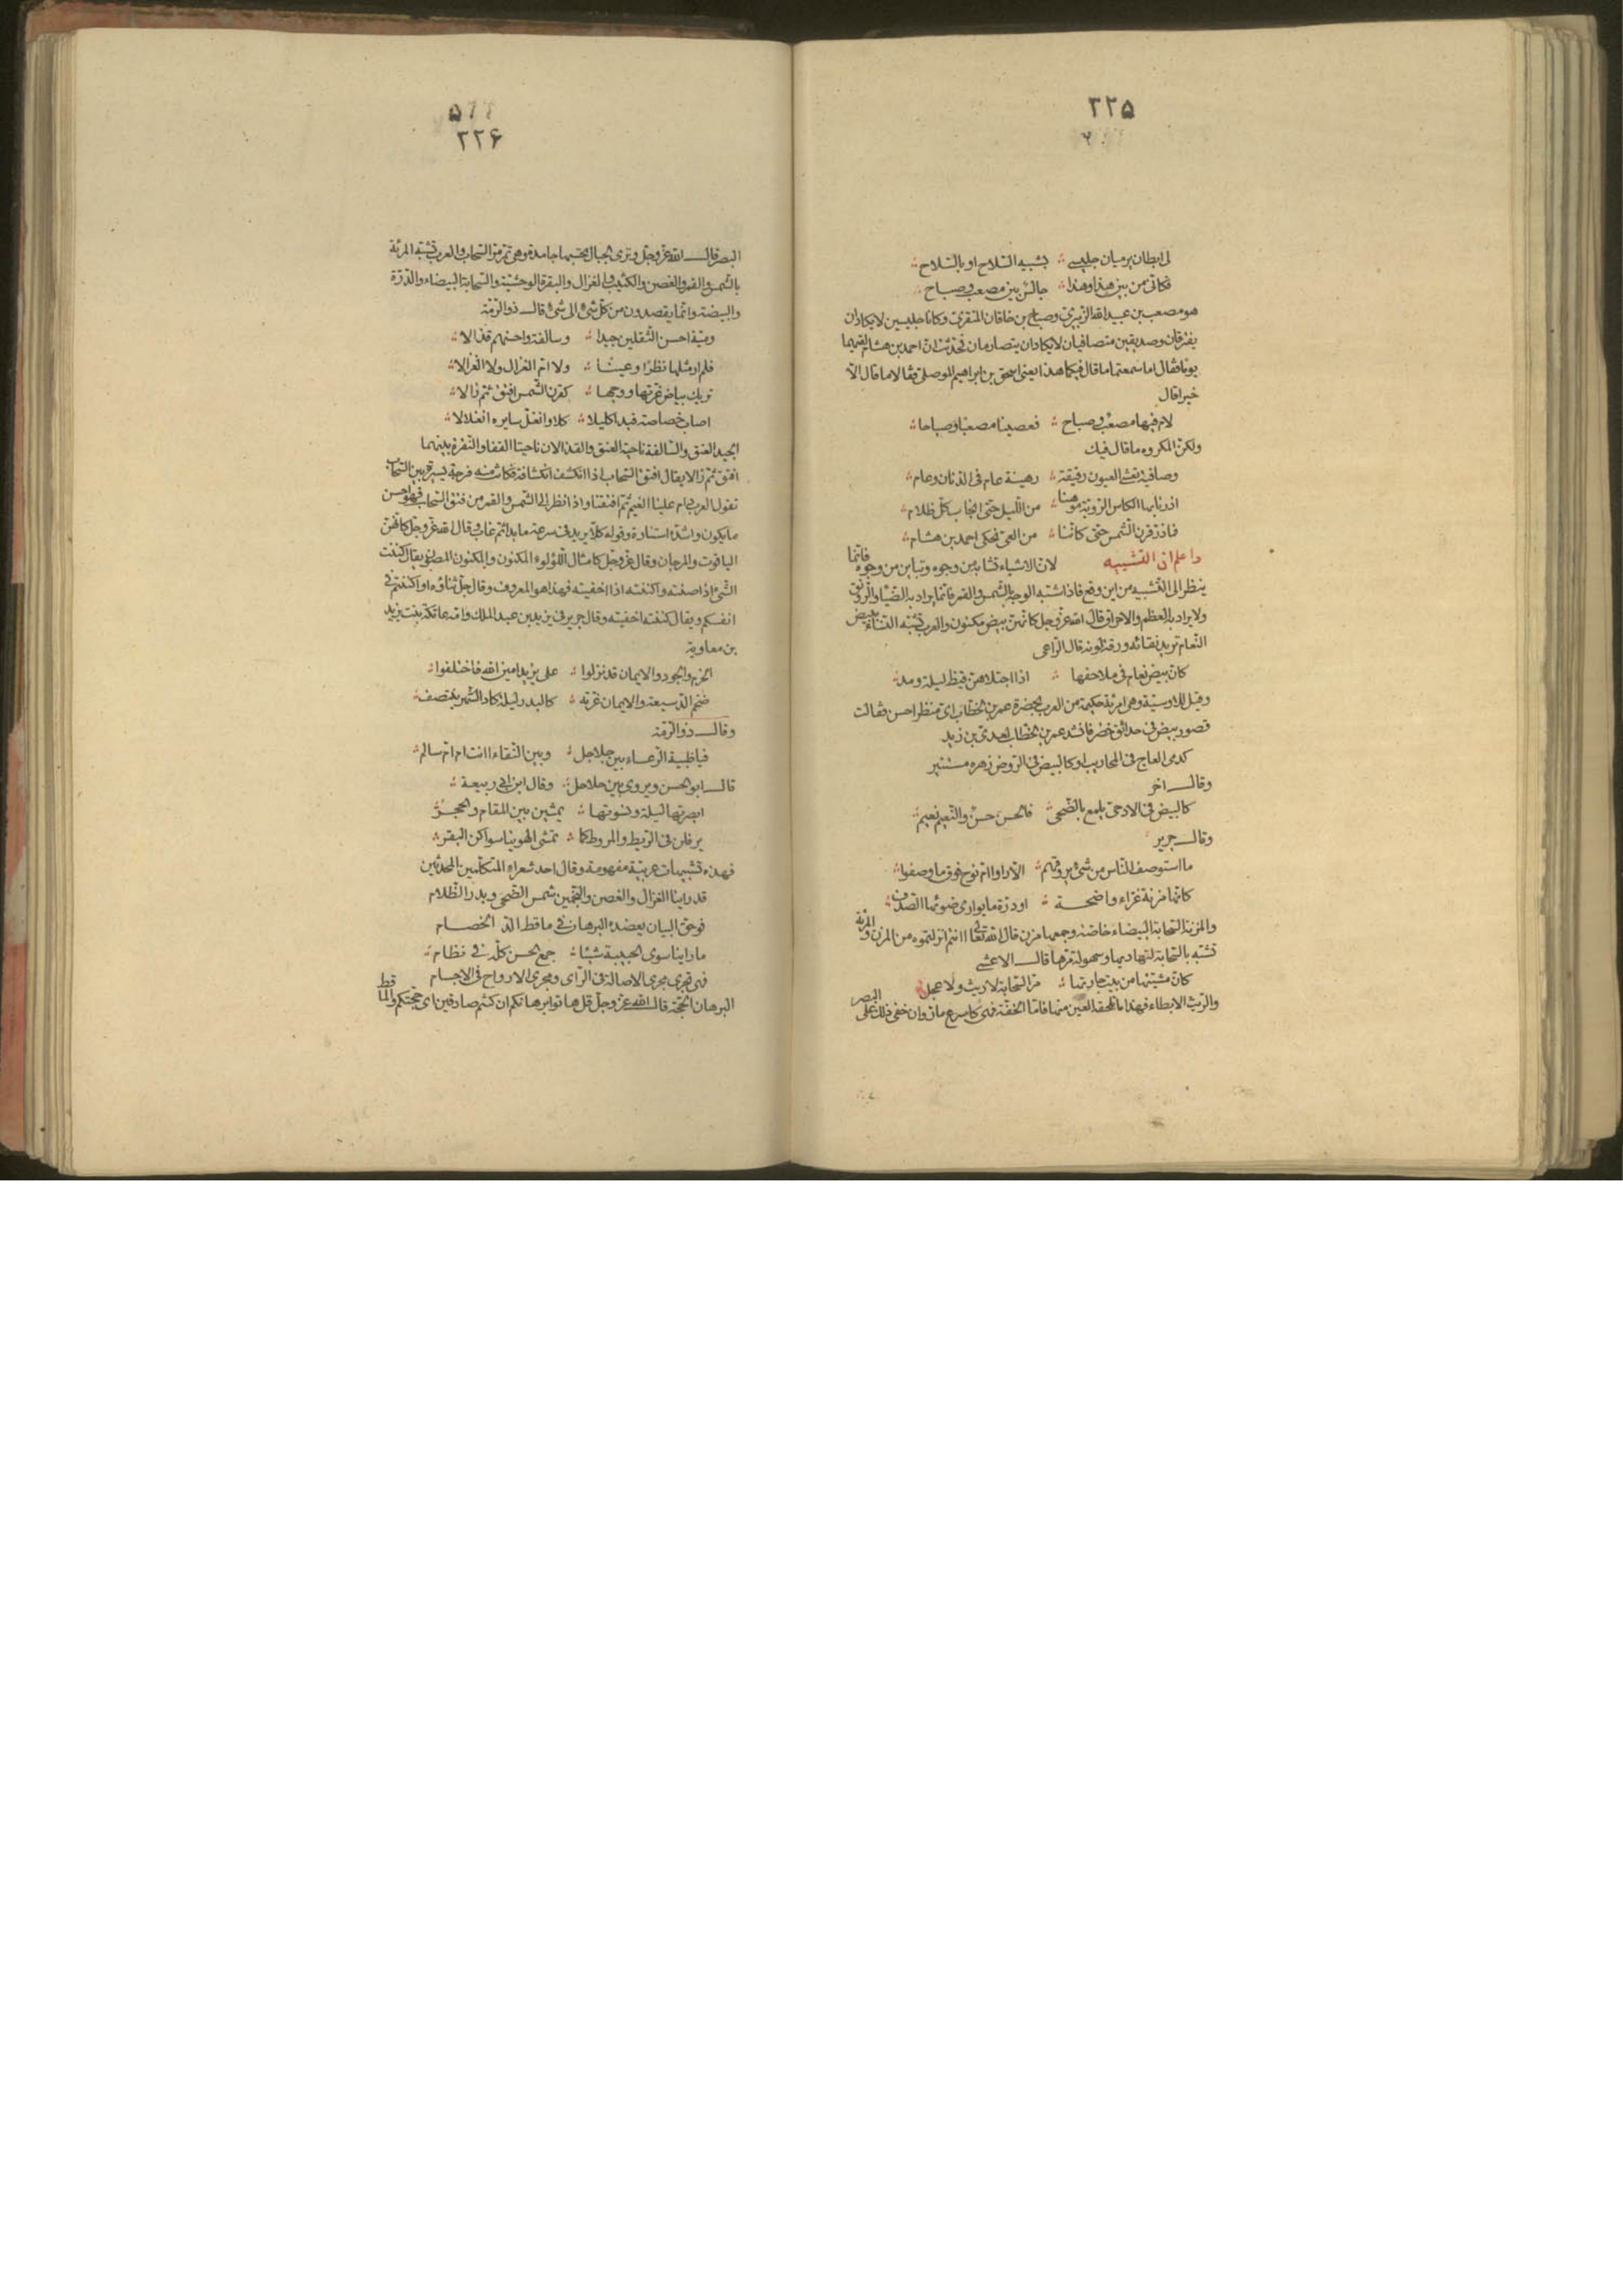 ٢٢۵
لی ابطان یرمیان جلیسے بشبیه السّلاح او بالسّلاح
فکانی من بین هذا وهذا جالس بین مصعب وصباح
هو مصعب بن عبید الله الزبیری وصباح بن خاقان المنقری وکانا جلیسین لایکادان
یفترقان وصدیقین متصافیان لایکادان یتصارمان فحدّثت انّ احمد بن هشام لقیهما
یوما فقال اما سمعتما ما قال فیکما هذا یعنی اسحق بن ابراهیم الموصلی فقالا ما قال الّا
خیرا قال
لام فیها مصعب وصباح فعصینا مصعبا وصباحا
ولکن المکروه ما قال فیک
وصافیة تغشی العیون رقیقة رهینة عام فی الدنان وعام
ادرنا بها الکاس الرویّة موهنا من اللّیل حتّی انجاب کلّ ظلام
فما ذرّ قرن الشّمس حتّی کانّنا من العیّ نحکی احمد بن هشام
واعلم ان التشبیه لان الاشیاء تشابه من وجوه وتباین من وجوه فانّما
ینظر الی التّشبیه من این وقع فاذا شبّه الوجه بالشّمس والقمر فانّما یراد به الضّیاء والرّونق
ولا یراد به العظم والاحراق قال الله عزّ وجل کانهنّ بیض مکنون والعرب تشبّه النّساء ببیض
النّعام ترید نقائه ورقة لونه قال الرّاعی
کانّ بیض نعام فی ملاحفها اذا اجتلاهنّ قیظ لیلة ومد
وقیل للاوسیّة وهی امرئة حکیمة من العرب بحضرة عمر بن الخطّاب ای منظر احسن فقالت
قصور بیض فی حدائق خضر فانشد عمر بن الخطّاب لعدی بن زید
کدمی العاج فی المحاریب او کالبیض فی الرّوض زهره مستنیر
وقال اخر
کالبیض فی الادحی یلمع بالضّحی فالحسن حسن والنّعیم نعیم
وقال جریر
ما استوصف النّاس من شیء یروقهم الّا راوا ام نوح فوق ما وصفوا
کانّها مزنة غرّاء واضحة او درّة ما یواری ضوئها الصّدف
والمزنة السّحابة البیضاء خاصّة وجمعها مزن قال الله تعالی أانتم انزلتموه من المزن والمرئة
تشبّه بالسّحابة لتهادیها وسهولة مرّها قال الاعشی
کانّ مشیتها من بیت جارتها مرّ السّحابة لا ریث ولا عجل
والرّیث الابطاء فهذا ما تلحقه العین منها فامّا الخفّة فهی کاسرع مارّ وان خفی ذلک علی البصر
٢٢۶
البصر قال الله عزّ وجلّ وتری الجبال تحسبها جامدة وهی تمرّ مرّ السّحاب والعرب تشبّه المرئة
بالشّمس والقمر والغصن والکثیب والغزال والبقرة الوحشیّة والسّحابة البیضاء والدّرّة
والبیضة وانّما یقصدون من کلّ شیء الی شیء قال ذو الرّمّة
ومیّة احسن الثّقلین جیدا وسالفة واحسنهم قذالا
فلم ار مثلها نظرا وعینا ولا امّ الغزال ولا الغزالا
تریک بیاض غرّتها ووجها کقرن الشّمس افتق ثمّ زالا
اصاب خصاصة فبدا کلیلا کلا وانغلّ سایره انغلالا
الجید العنق والسّالفة ناحیة العنق والقذالان ناحیتا القفا والنّقرة بینهما
افتق ثمّ زالا یقال افتق السّحاب اذا انکشف انکشافة فکانت منه فرجة یسیرة بین السّحاب
تقول العرب دام علینا الغیم ثمّ افتقنا واذا نظر الی الشّمس والقمر من فتق السّحاب فهو احسن
ما یکون واشدّ استنارة وقوله کلا یرید فی سرعة ما بدا ثمّ غاب وقال الله عزّ وجلّ کانّهنّ
الیاقوت والمرجان وقال عزّ وجلّ کامثال اللّؤلوء المکنون والمکنون المصون یقال کننت
الشّیء اذا صنته واکننته اذا اخفیته فهذا هو المعروف وقال جلّ ثناؤه او اکننتم فی
انفسکم ویقال کننته اخفیته وقال جریر فی یزید بن عبد الملک وامّه عاتکة بنت یزید
بن معاویة
الحزم والجود والایمان قد نزلوا علی یزید امین الله فاختلفوا
ضخم الدّسیعة والایمان غرّته کالبدر لیلة کاد الشّهر ینتصف
وقال ذو الرّمّة
فیا ظبیة الوعساء بین جلاجل وبین النّقاء اانت ام امّ سالم
قال ابو الحسن ویروی بین حلاحل وقال ابن ابی ربیعة
ابصرتها لیلة ونسوتها یمشین بین المقام والحجر
یرفلن فی الرّیط والمروط کما تمشی الهوینا سواکن البقر
فهذه تشبیهات عربیّة مفهومة وقال احد شعراء المتکلّمین المحدثین
قد راینا الغزال والغصن والنّجمین شمس الضّحی وبدر الظّلام
فوحق البیان یعضده البرهان فی ماقط الدّ الخصام
ما راینا سوی الحبیبة شیئا جمع الحسن کلّه فی نظام
فهی تجری مجری الاصالة فی الرّای ومجری الارواح فی الاجسام
البرهان الحجّة قال الله عزّ وجلّ قل هاتوا برهانکم ان کنتم صادقین ای حجّتکم والماقط